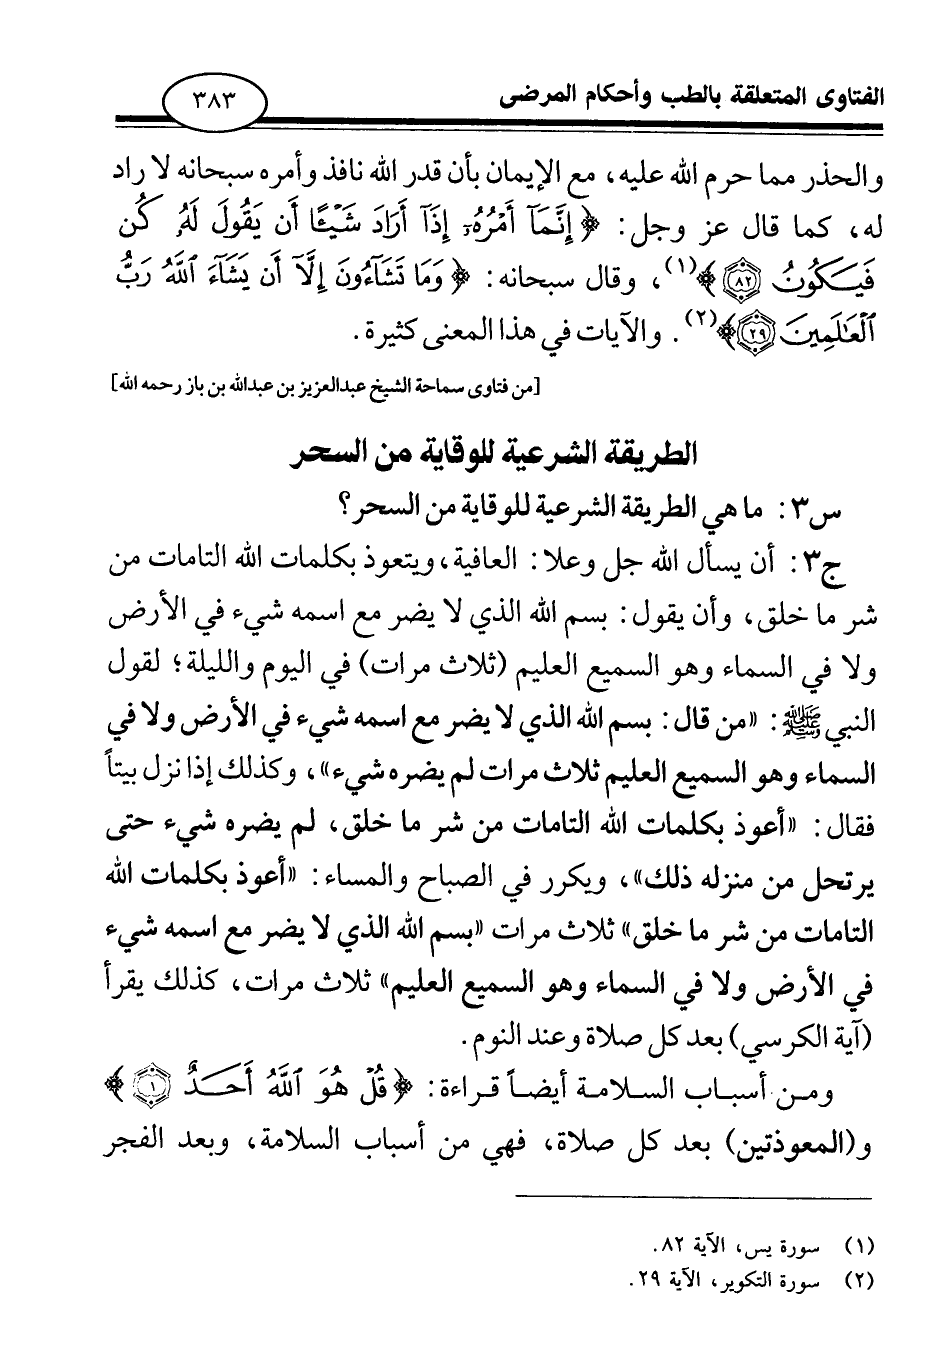 الفتاوى المتعلقة بالطب وأحكام المرضى
٣٨٣
والحذر مما حرم الله عليه، مع الإيمان بأن قدر الله نافذ وأمره سبحانه لا راد
له، كما قال عز وجل: ﴿إِنَّمَآ أَمْرُهُۥٓ إِذَآ أَرَادَ شَيْـًٔا أَن يَقُولَ لَهُۥ كُن
فَيَكُونُ ۝٨٢﴾(١)، وقال سبحانه: ﴿وَمَا تَشَآءُونَ إِلَّآ أَن يَشَآءَ ٱللَّهُ رَبُّ
ٱلْعَٰلَمِينَ ۝٢٩﴾(٢). والآيات في هذا المعنى كثيرة.
[من فتاوى سماحة الشيخ عبدالعزيز بن عبدالله بن باز رحمه الله]
الطريقة الشرعية للوقاية من السحر
س٣: ما هي الطريقة الشرعية للوقاية من السحر؟
ج٣: أن يسأل الله جل وعلا: العافية، ويتعوذ بكلمات الله التامات من
شر ما خلق، وأن يقول: بسم الله الذي لا يضر مع اسمه شيء في الأرض
ولا في السماء وهو السميع العليم (ثلاث مرات) في اليوم والليلة؛ لقول
النبي ﷺ: «من قال: بسم الله الذي لا يضر مع اسمه شيء في الأرض ولا في
السماء وهو السميع العليم ثلاث مرات لم يضره شيء»، وكذلك إذا نزل بيتاً
فقال: «أعوذ بكلمات الله التامات من شر ما خلق، لم يضره شيء حتى
يرتحل من منزله ذلك»، ويكرر في الصباح والمساء: «أعوذ بكلمات الله
التامات من شر ما خلق» ثلاث مرات «بسم الله الذي لا يضر مع اسمه شيء
في الأرض ولا في السماء وهو السميع العليم» ثلاث مرات، كذلك يقرأ
(آية الكرسي) بعد كل صلاة وعند النوم.
ومن أسباب السلامة أيضاً قراءة: ﴿قُلْ هُوَ ٱللَّهُ أَحَدٌ ۝١﴾
و(المعوذتين) بعد كل صلاة، فهي من أسباب السلامة، وبعد الفجر
(١) سورة يس، الآية ٨٢.
(٢) سورة التكوير، الآية ٢٩.